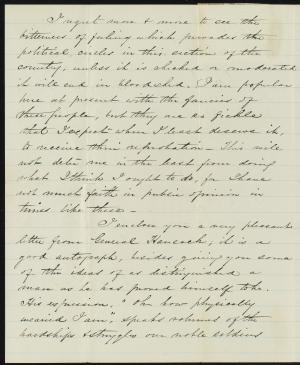 I regret more & more to see the
bitterness of feeling which pervades the
political circles in this section of the
country, unless it is checked or moderated
it will end in bloodshed. I am popular
here at present with the fancies of
these people, but they are as fickle
that I expect when I least deserve it,
to receive their reprobation. This will
not deter me in the least from doing
what I think I ought to do, for I have
not much faith in public opinion in
times like these –
I enclose you a very pleasant
letter from General Hancock, it is a
good autograph, besides giving you some
of the ideas of as distinguished a
man as he has proved himself to be.
His expression, "Oh how physically
wearied I am", speaks volumes of the
hardships & struggles our noble soldiers